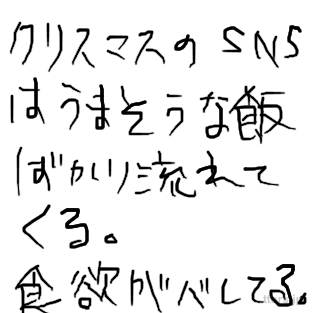 クリスマスの SNS
はうまそうな飯
ばかり流れて
くる。
食欲がバしてる。